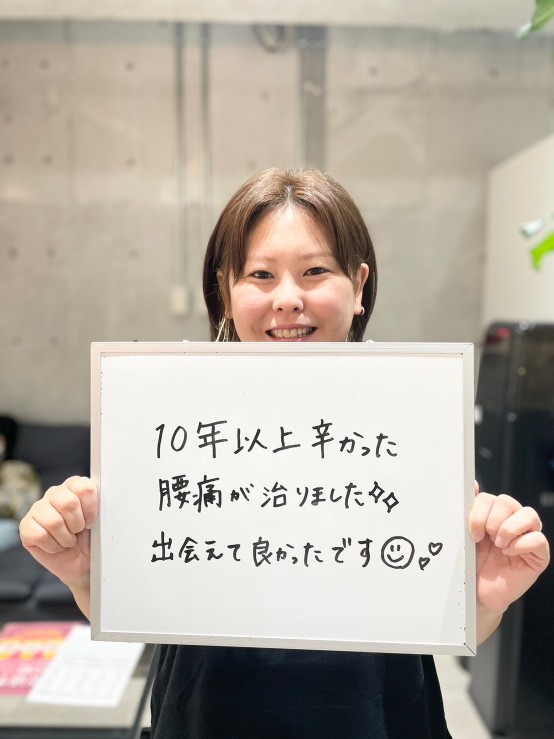 10年以上辛かった
腰痛が治りました
出会えて良かったです